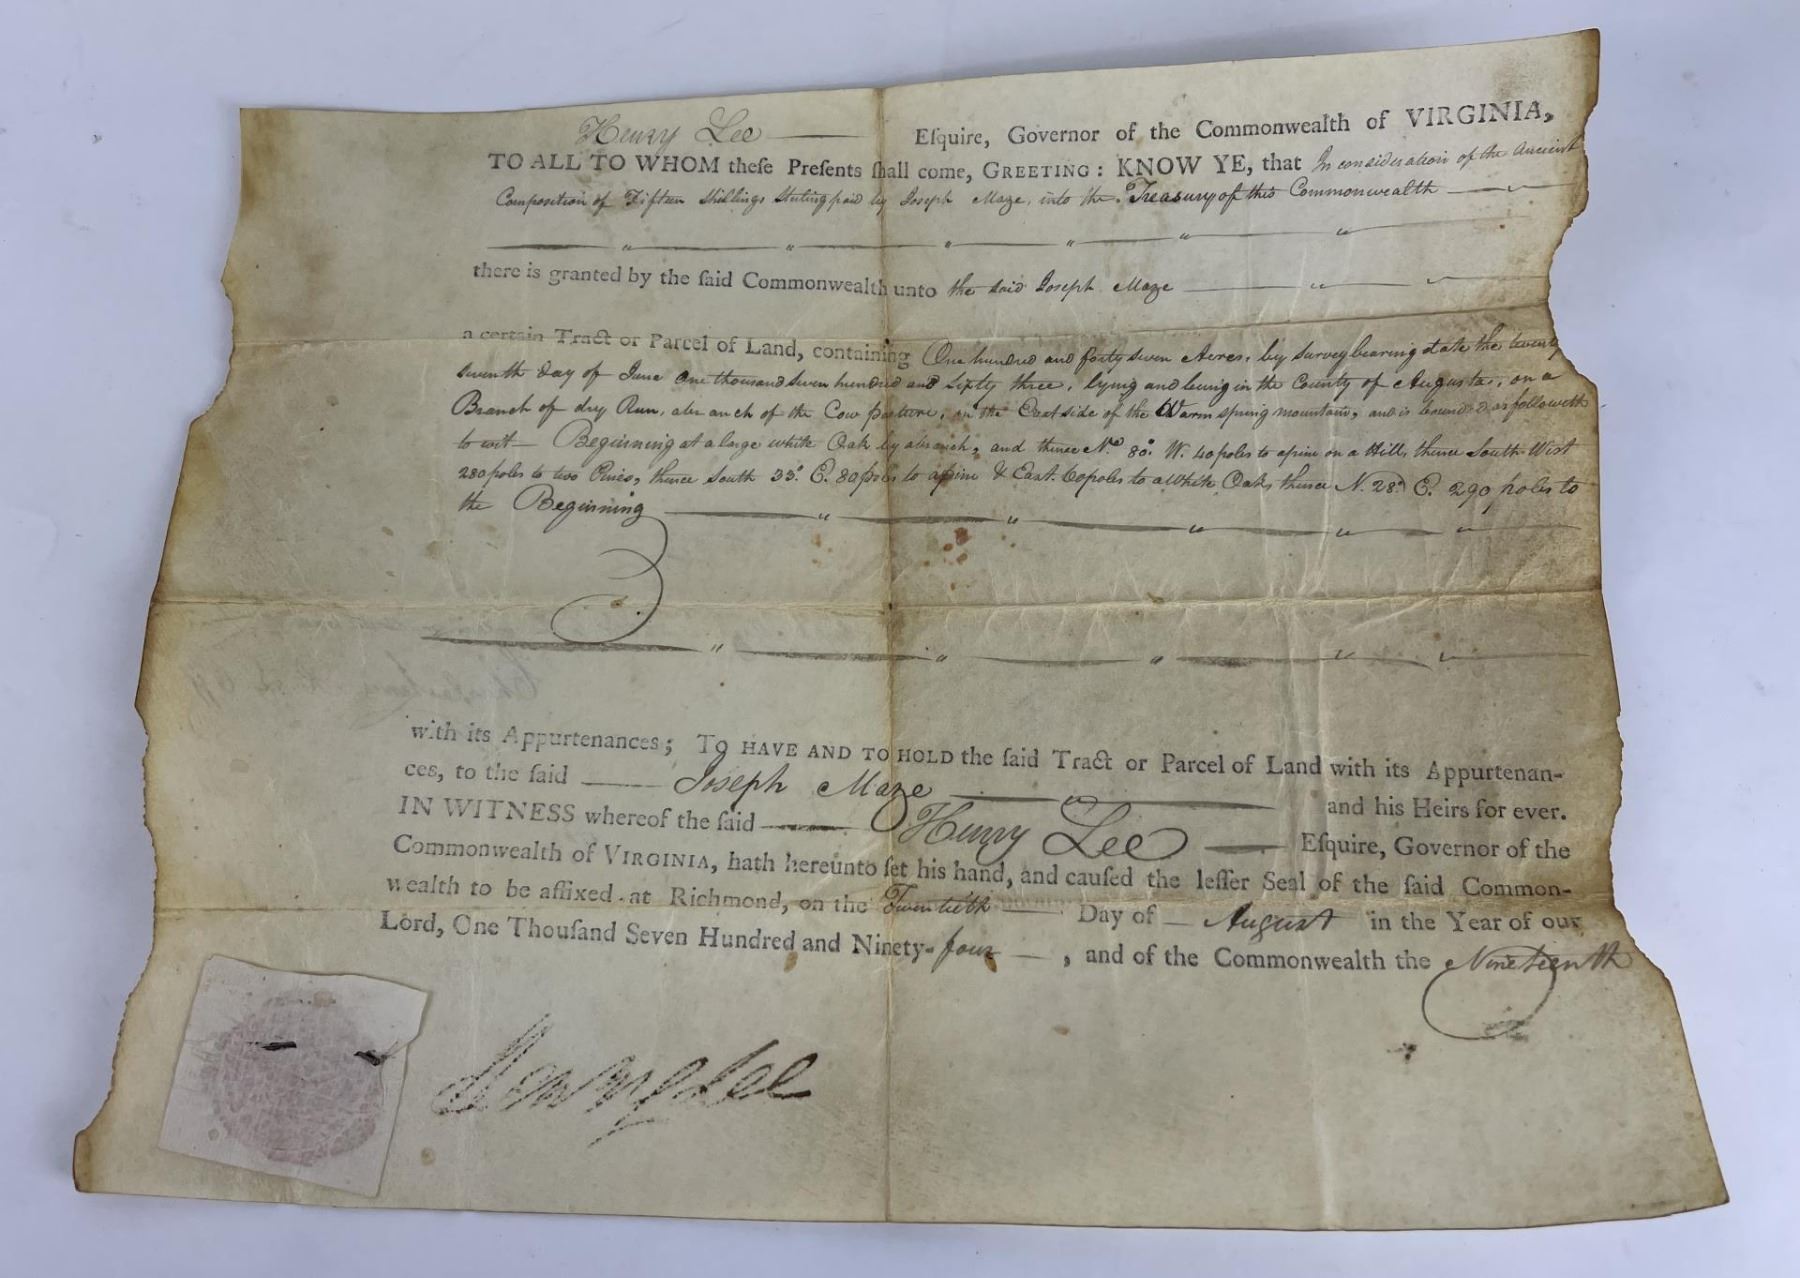 Henry Lee Eſquire, Governor of the Commonwealth of VIRGINIA,
TO ALL TO WHOM theſe Preſents ſhall come, GREETING: KNOW YE, that In consideration of the Ancient
Composition of Fifteen Shillings Sterling paid by Joseph Maze, into the Treasury of this Commonwealth
there is granted by the ſaid Commonwealth unto the said Joseph Maze
a certain Tract or Parcel of Land, containing One hundred and forty seven Acres, by survey bearing date the twenty
seventh day of June One thousand seven hundred and sixty three, lying and being in the County of Augusta, on a
Branch of dry Run, a branch of the Cow pasture, on the East side of the Warm spring mountain, and is bounded as followeth
to wit Beginning at a large white Oak by a branch, and thence No. 80° W. 40 poles to a pine on a Hill, thence South West
280 poles to two Pines, thence South 33° E. 80 poles to a pine & East 60 poles to a White Oak, thence N. 28° E. 290 poles to
the Beginning
with its Appurtenances; TO HAVE AND TO HOLD the ſaid Tract or Parcel of Land with its Appurtenan-
ces, to the ſaid Joseph Maze and his Heirs for ever.
IN WITNESS whereof the ſaid Henry Lee Eſquire, Governor of the
Commonwealth of VIRGINIA, hath hereunto ſet his hand, and cauſed the leſſer Seal of the ſaid Common-
wealth to be affixed at Richmond, on the Twentieth Day of August in the Year of our
Lord, One Thouſand Seven Hundred and Ninety-four, and of the Commonwealth the Nineteenth
Henry Lee